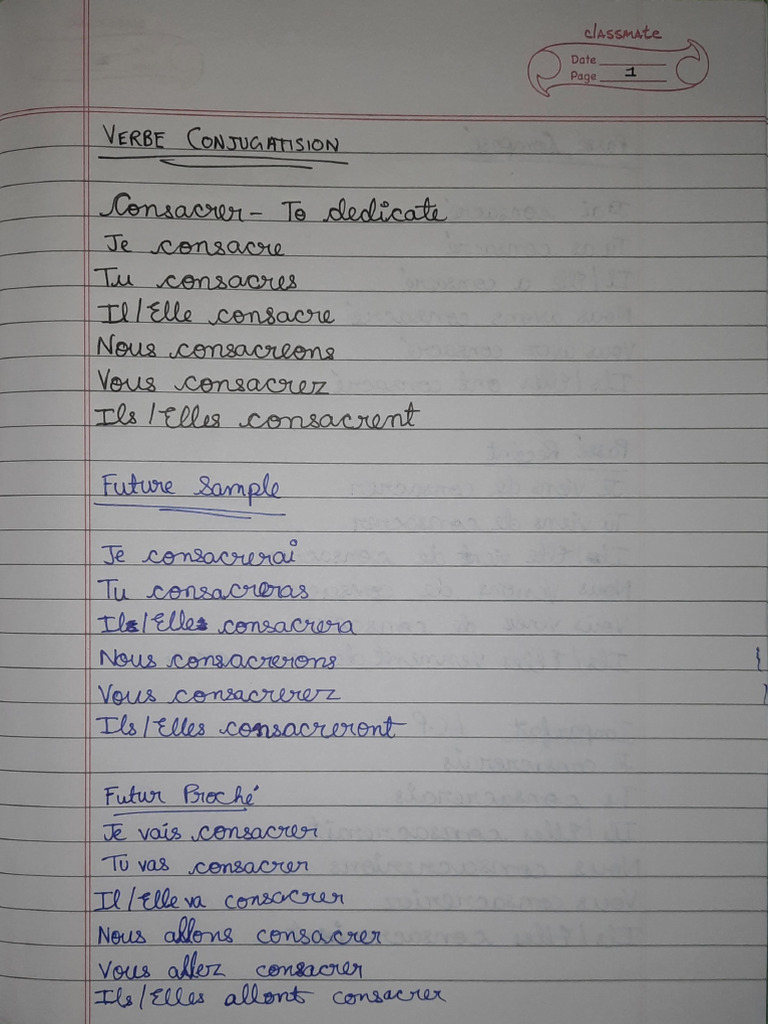 classmate
Date
Page 1
VERBE CONJUGATISION
Consacrer - To dedicate
Je consacre
Tu consacres
Il/Elle consacre
Nous consacreons
Vous consacrez
Ils/Elles consacrent
Future Sample
Je consacrerai
Tu consacreras
Il/Elle consacrera
Nous consacrerons
Vous consacrerez
Ils/Elles consacreront
Futur Proché
Je vais consacrer
Tu vas consacrer
Il/Elle va consacrer
Nous allons consacrer
Vous allez consacrer
Ils/Elles allont consacrer